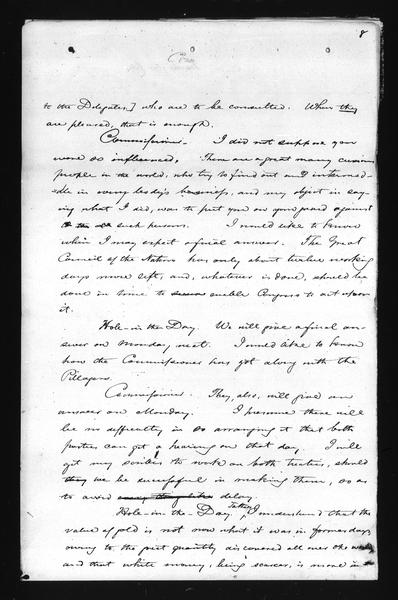 8
to the Delegates] who are to be consulted. When they
are pleased, that is enough.
Commissioner. - I did not suppose you
were so influenced. There are a great many curious
people in the world, who try to find out and intermed-
dle in every body's business, and my object in say-
ing what I did, was to put you on your guard against
such persons. I would like to know
when I may expect a final answer. The Great
Council of the Nation has only about twelve working
days more left, and, whatever is done, should be
done in time to enable Congress to act upon
it.
Hole-in-the-Day. We will give a final an-
swer on Monday next. I would like to know
how the Commissioner has got along with the
Pillagers.
Commissioner. They, also, will give an
answer on Monday. I presume there will
be no difficulty in so arranging it that both
parties can get a hearing on that day. I will
get my scribes to work on both treaties, should
we be successful in making them, so as
to avoid delay.
Hole-in-the-Day. Father, I understand that the
value of gold is not now what it was in former days,
owing to the great quantity discovered all over the world
and that white money, being scarcer, is more in